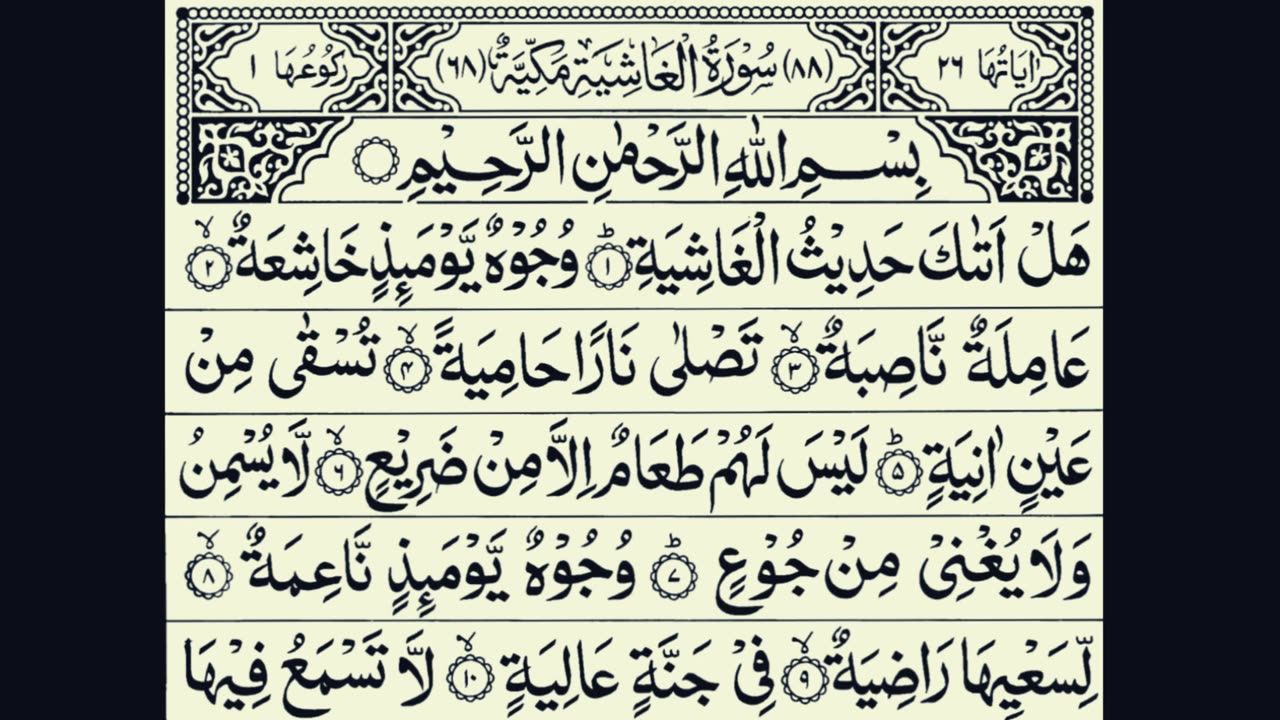 اٰيَاتُهَا ٢٦ (٨٨) سُوْرَةُ الْغَاشِيَةِ مَكِّيَّةٌ (٦٨) رَكُوْعُهَا ١
بِسْمِ اللّٰهِ الرَّحْمٰنِ الرَّحِيْمِ ۝
هَلْ اَتٰىكَ حَدِيْثُ الْغَاشِيَةِ ؕ﴿١﴾ وُجُوْهٌ يَّوْمَئِذٍ خَاشِعَةٌ ۙ﴿٢﴾
عَامِلَةٌ نَّاصِبَةٌ ۙ﴿٣﴾ تَصْلٰى نَارًا حَامِيَةً ۙ﴿۴﴾ تُسْقٰى مِنْ
عَيْنٍ اٰنِيَةٍ ؕ﴿۵﴾ لَيْسَ لَهُمْ طَعَامٌ اِلَّا مِنْ ضَرِيْعٍ ۙ﴿۶﴾ لَّا يُسْمِنُ
وَلَا يُغْنِىْ مِنْ جُوْعٍ ؕ﴿٧﴾ وُجُوْهٌ يَّوْمَئِذٍ نَّاعِمَةٌ ۙ﴿٨﴾
لِّسَعْيِهَا رَاضِيَةٌ ۙ﴿٩﴾ فِىْ جَنَّةٍ عَالِيَةٍ ۙ﴿١٠﴾ لَّا تَسْمَعُ فِيْهَا